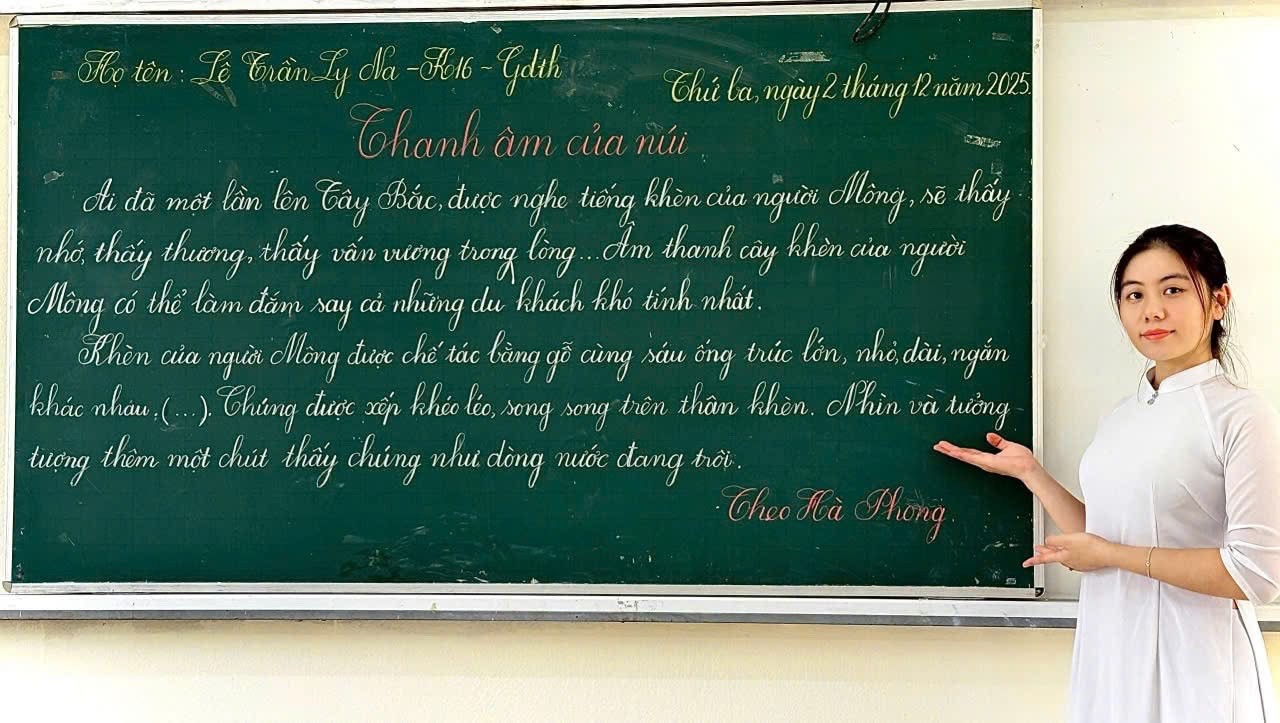 Họ tên : Lê Trần Ly Na - K16 - Gdth
Thứ ba, ngày 2 tháng 12 năm 2025.
Thanh âm của núi
Ai đã một lần lên Tây Bắc, được nghe tiếng khèn của người Mông, sẽ thấy
nhớ, thấy thương, thấy vấn vương trong lòng... Âm thanh cây khèn của người
Mông có thể làm đắm say cả những du khách khó tính nhất.
Khèn của người Mông được chế tác bằng gỗ cùng sáu ống trúc lớn, nhỏ, dài, ngắn
khác nhau.(...). Chúng được xếp khéo léo, song song trên thân khèn. Nhìn và tưởng
tượng thêm một chút thấy chúng như dòng nước đang trôi.
Theo Hà Phong.